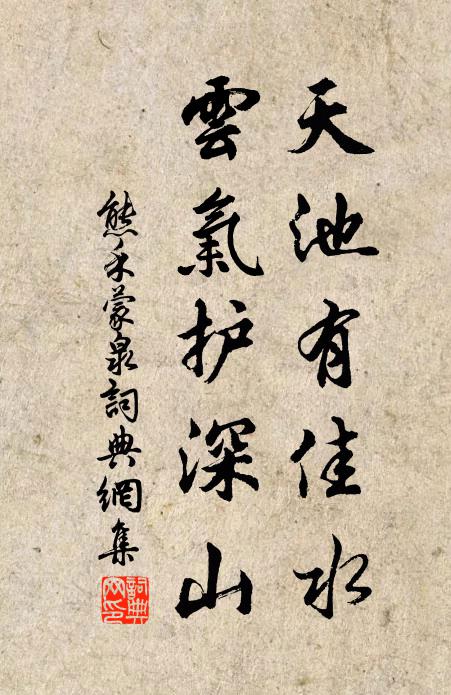 天池有佳水
雲氣护深山
熊禾蒙泉詞典網集
詞典网印